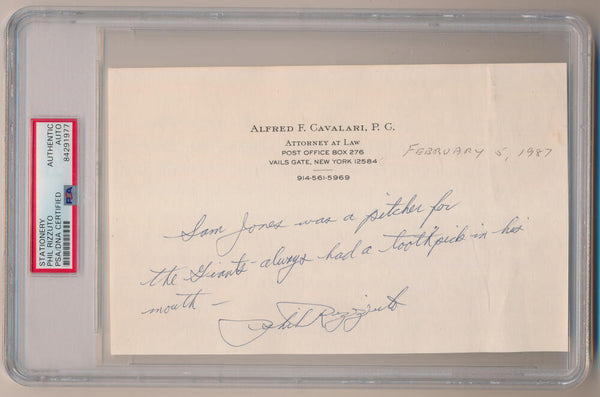 STATIONERY
PHIL RIZZUTO
PSA/DNA CERTIFIED
AUTHENTIC
AUTO
84291977
PSA
ALFRED F. CAVALARI, P. C.
ATTORNEY AT LAW
POST OFFICE BOX 276
VAILS GATE, NEW YORK 12584
914-561-5969
FEBRUARY 5, 1987
Sam Jones was a pitcher for
the Giants - always had a toothpick in his
mouth -
Phil Rizzuto